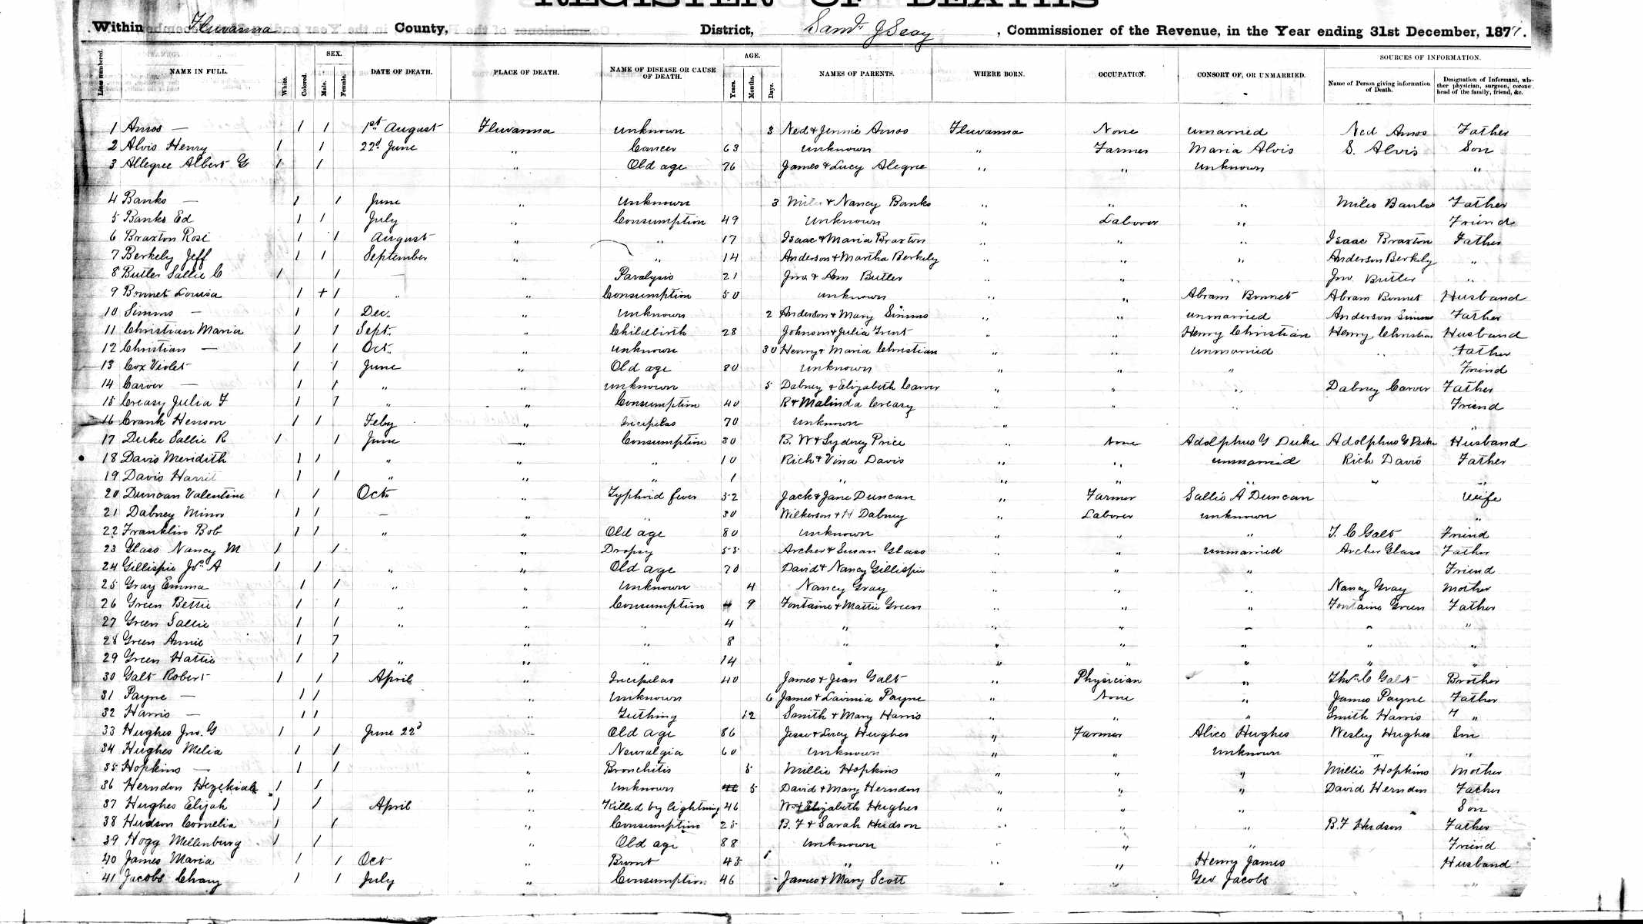 REGISTER OF DEATHS
Within Fluvanna County, District, Saml J Seay, Commissioner of the Revenue, in the Year ending 31st December, 187
SEX. AGE. SOURCES OF INFORMATION.
Line numbered. NAME IN FULL. White. Colored. Male. Female. DATE OF DEATH. PLACE OF DEATH. NAME OF DISEASE OR CAUSE OF DEATH. Years. Months. Days. NAMES OF PARENTS. WHERE BORN. OCCUPATION. CONSORT OF, OR UNMARRIED. Name of Person giving information of Death. Designation of Informant, whether physician, surgeon, coroner, head of the family, friend, &c.
1 Amos — 1 1 1st August Fluvanna Unknown 3 Ned & Jennie Amos Fluvanna None unmarried Ned Amos Father
2 Alvis Henry 1 1 22d June " Cancer 63 Unknown " Farmer Maria Alvis S. Alvis Son
3 Allegree Albert G 1 1 " Old age 76 James & Lucy Alegree " " Unknown "
4 Banks — 1 1 June " Unknown 3 Miles & Nancy Banks " " " Miles Banks Father
5 Banks Ed 1 1 July " Consumption 49 Unknown " Laborer " Friend
6 Braxton Rosi 1 1 August " " 17 Isaac & Maria Braxton " " " Isaac Braxton Father
7 Berkely Jeff 1 1 September " " 14 Anderson & Martha Berkely " " " Anderson Berkely "
8 Butler Sallie C 1 1 " " Paralysis 21 Jno & Ann Butler " " " Jno Butler "
9 Bonnet Louisa 1 + 1 " " Consumption 50 unknown " " Abram Bonnet Abram Bonnet Husband
10 Simms — 1 1 Dec. " Unknown 2 Anderson & Mary Simms " " unmarried Anderson Simms Father
11 Christian Maria 1 1 Sept. " Childbirth 28 Johnson & Julia Trent " " Henry Christian Henry Christian Husband
12 Christian — 1 1 Oct. " Unknown 30 Henry & Maria Christian " " unmarried " Father
13 Cox Violet 1 1 June " Old age 80 Unknown " " " Friend
14 Carver — 1 1 " " unknown 5 Dabney & Elizabeth Carver " " " Dabney Carver Father
15 Creasy Julia F 1 1 " " Consumption 40 R & Malinda Creasy " " " Friend
16 Crank Henson 1 1 Feby " 70 Unknown " "
17 Duke Sallie R 1 1 June " Consumption 30 B. W & Sydney Price " None Adolphus G Duke Adolphus G Duke Husband
18 Davis Meredith 1 1 " " " 10 Rich & Vina Davis " " unmarried Rich Davis Father
19 Davis Harrit 1 1 " " " 1 " " " " " "
20 Duncan Valentine 1 1 Oct. " Typhoid fever 52 Jack & Jane Duncan " Farmer Sallie A Duncan Wife
21 Dabney Minor 1 1 — " " 30 Wilkerson & H Dabney " Laborer unknown "
22 Franklin Bob 1 1 " " Old age 80 Unknown " " " T. C Galt Friend
23 Glass Nancy M 1 1 " Dropsy 55 Archer & Susan Glass " " unmarried Archer Glass Father
24 Gillispie Js A 1 1 " " Old age 70 David & Nancy Gillispie " " " Friend
25 Gray Emma 1 1 " " Unknown 4 Nancy Gray " " " Nancy Gray Mother
26 Green Bettie 1 1 " " Consumption 9 Fontaine & Mattie Green " " " Fontaine Green Father
27 Green Sallie 1 1 " " " 4 " " " " " "
28 Green Annie 1 1 " " 8 " " " " " "
29 Green Hattie 1 1 " " " 14 " " " " " "
30 Galt Robert 1 1 April " 40 James & Jean Galt " Physician " Thos C Galt Brother
31 Payne — 1 1 " Unknown 6 James & Lavinia Payne " None " James Payne Father
32 Harris — 1 1 " Teething 12 Smith & Mary Harris " " " Smith Harris "
33 Hughes Jno. G 1 1 June 22d " Old age 86 Jesse & Lucy Hughes " Farmer Alice Hughes Wesley Hughes Son
34 Hughes Melia 1 1 " Neuralgia 60 Unknown " " Unknown " "
35 Hopkins — 1 1 " Bronchitis 5 Millie Hopkins " " " Millie Hopkins Mother
36 Herndon Hezekiah 1 1 " Unknown 5 David & Mary Herndon " " " David Herndon Father
37 Hughes Elijah 1 1 April " Killed by lightning 46 Wm & Elizabeth Hughes " " " Son
38 Hudson Cornelia 1 1 " Consumption 25 B. F & Sarah Hudson " " " B. F Hudson Father
39 Hogg Mellenburg 1 1 " Old age 88 Unknown " " " Friend
40 James Maria 1 1 Oct " Burnt 45 " " " Henry James Husband
41 Jacobs Chany 1 1 July " Consumption 46 James & Mary Scott " " Geo Jacobs "